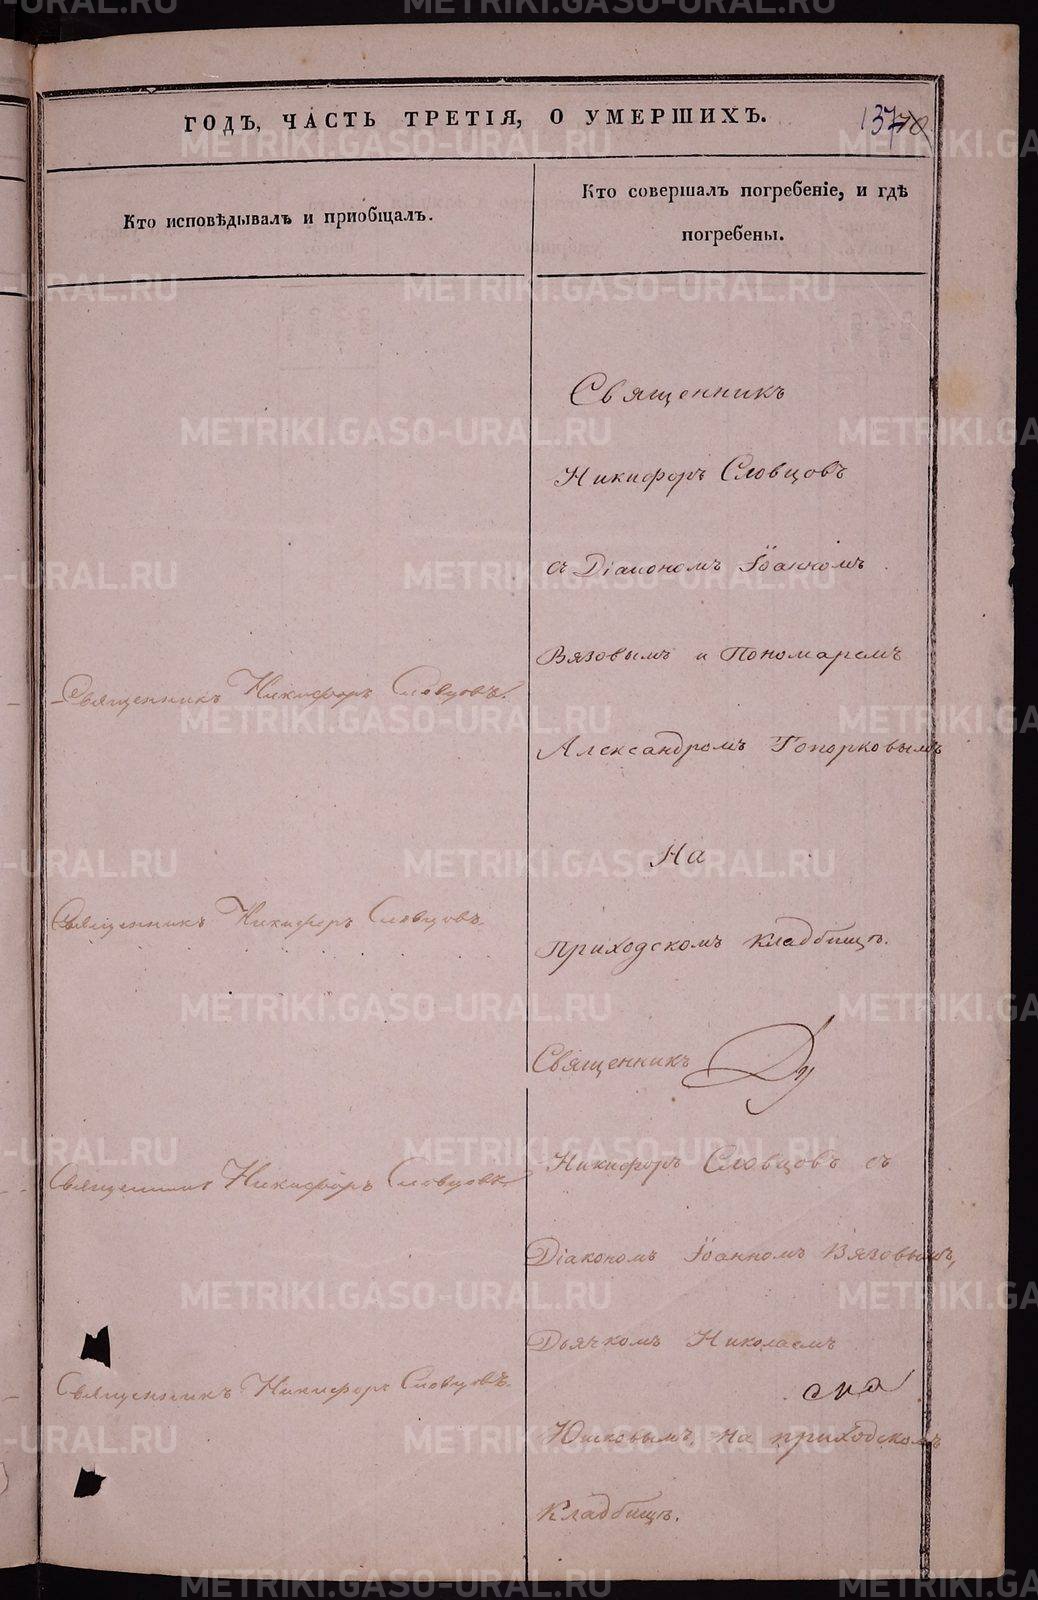 ГОДЪ, ЧАСТЬ ТРЕТІЯ, О УМЕРШИХЪ.
137
Кто исповѣдывалъ и пріобщалъ.
Кто совершалъ погребеніе, и гдѣ
погребены.
Священникъ
Никифоръ Словцовъ
съ Діакономъ Іоанномъ
Вязовымъ и Пономаремъ
Александромъ Топорковымъ
На
приходскомъ кладбищѣ.
Священникъ
Никифоръ Словцовъ съ
Діакономъ Іоанномъ Вязовымъ,
Дьячкомъ Николаемъ
Юшковымъ, на приходскомъ
кладбищѣ.
Священникъ Никифоръ Словцовъ.
Священникъ Никифоръ Словцовъ.
Священникъ Никифоръ Словцовъ
Священникъ Никифоръ Словцовъ.
METRIKI.GASO-URAL.RU